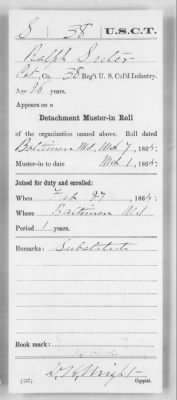 S 38 U.S.C.T.
Ralph Suter
Pvt., Co. , 38 Reg't U. S. Col'd Infantry.
Age 26 years.
Appears on a
Detachment Muster-in Roll
of the organization named above. Roll dated
Baltimore Md, Mch 7, 1865.
Muster-in to date Mch 1, 1865.
Joined for duty and enrolled:
When Feb 27, 1865.
Where Baltimore Md
Period 1 years.
Remarks: Substitute
Book mark:
(437) Wright Copyist.